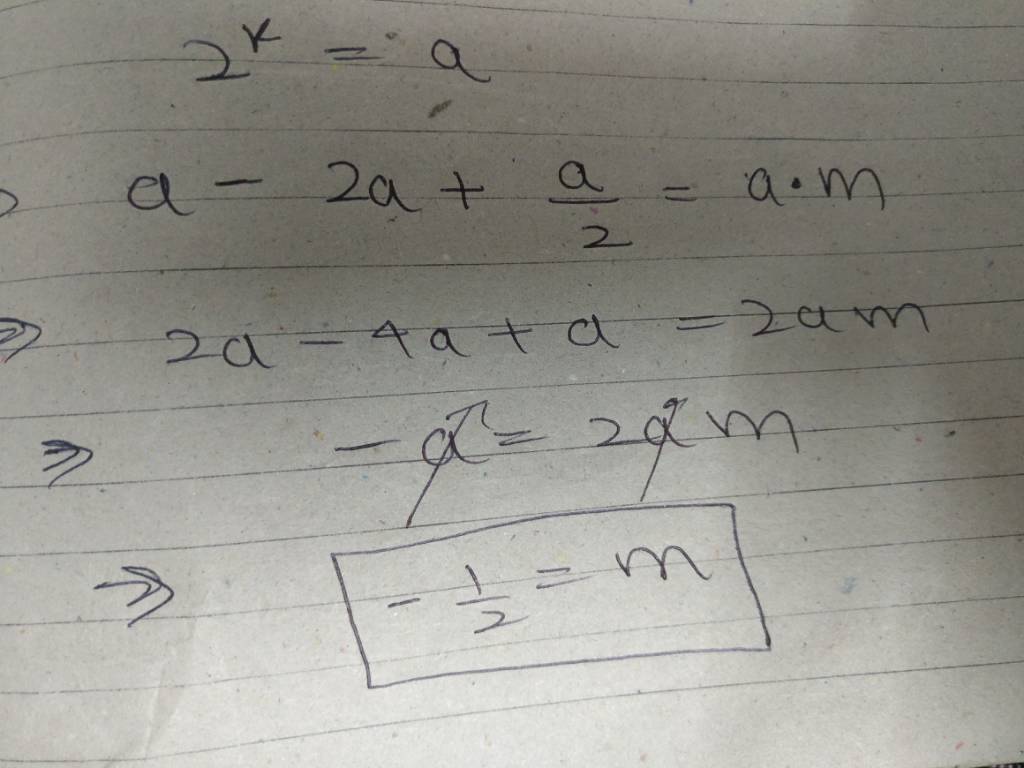 2^k = a
⇒ a - 2a + a/2 = a·m
⇒ 2a - 4a + a = 2am
⇒ -a = 2am
⇒ -1/2 = m